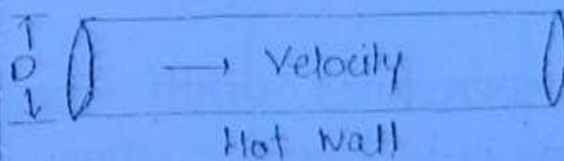 D → Velocity
Hot Wall